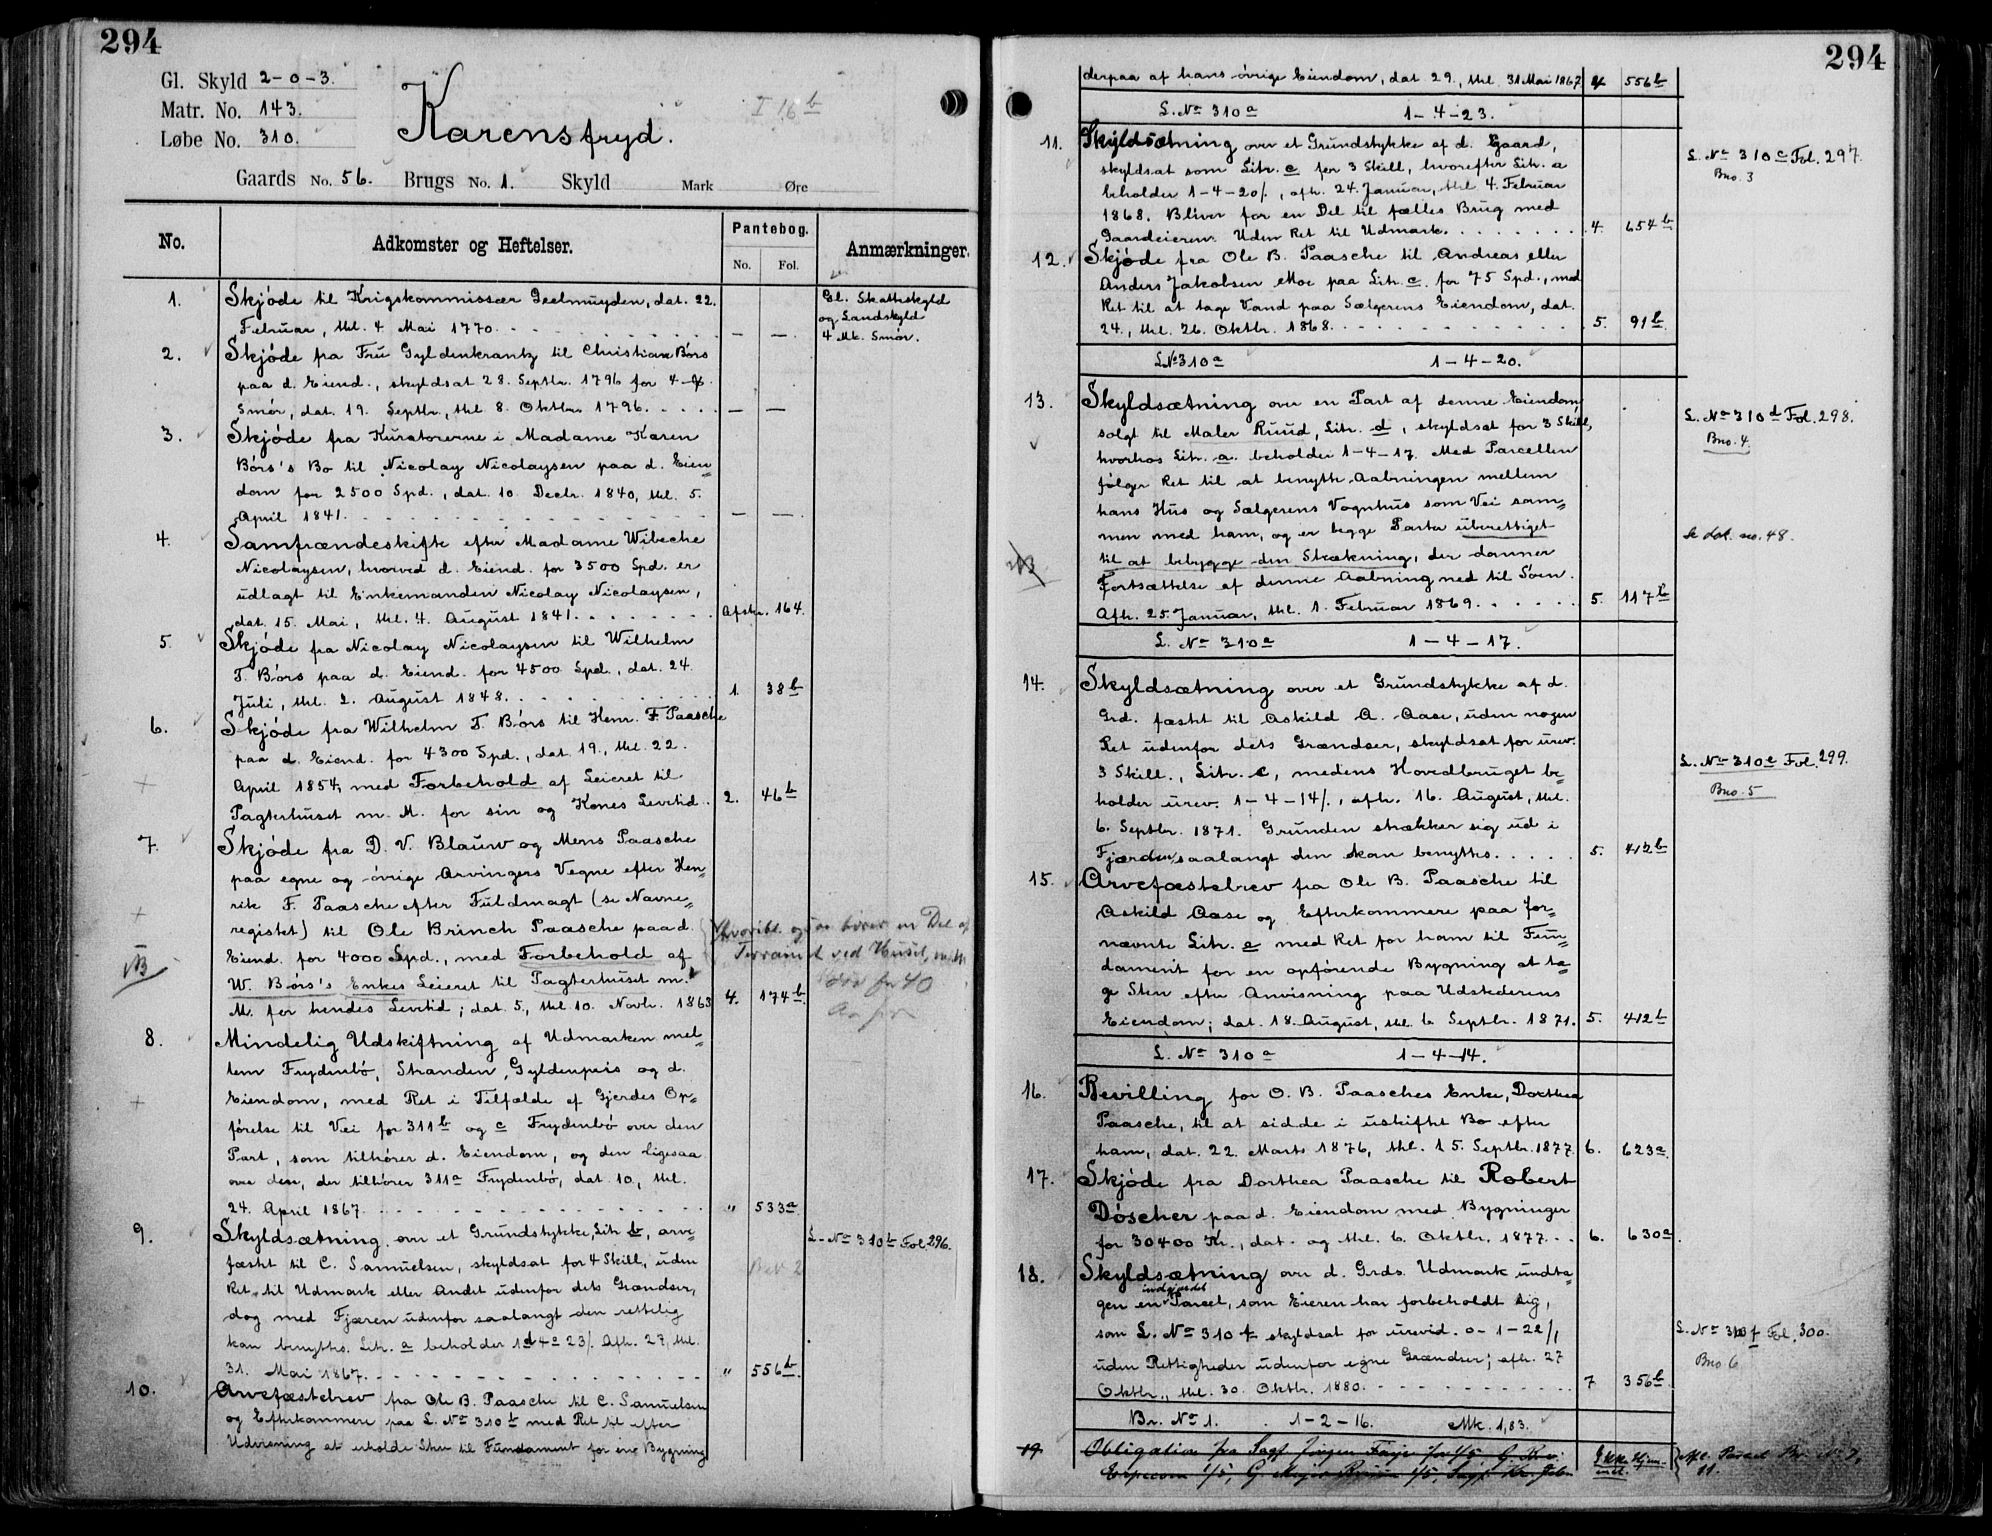 294
Gl. Skyld 2-0-3.
Matr. No. 143.
Løbe No. 310.
Karensfryd.
I 16 b
Gaards No. 56. Brugs No. 1. Skyld Mark Øre
No. Adkomster og Heftelser. Pantebog. Anmærkninger.
No. Fol.
1. Skjöde til Krigskommissær Geelmuyden, dat. 22.
Februar, thl. 4 Mai 1770. — —
Gl. Skatteskyld
og Landskyld
4 Mk. Smör.
2. Skjöde fra Frü Gyldenkrantz til Christian Börs
paa d. Eiend., skyldsat 28. Septbr. 1796 for 4
Smör, dat. 19. Septbr., thl. 8. Oktbr. 1796. — —
3. Skjöde fra Kuratorerne i Madame Karen
Börs's Bo til Nicolay Nicolaysen paa d. Eien„
dom for 2500 Spd., dat. 10. Decbr. 1840, thl. 5.
April 1841. — —
4. Samfrændeskifte efter Madame Wibeche
Nicolaysen, hvorved d. Eiend. for 3500 Spd. er
udlagt til Enkemanden Nicolay Nicolaysen,
dat. 15. Mai, thl. 4. August 1841. Afskr. 164.
5. Skjöde fra Nicolay Nicolaysen til Wilhelm
T. Börs paa d. Eiend. for 4500 Spd., dat. 24.
Juli, thl. 2. August 1848. 1. 38 b
6. Skjöde fra Wilhelm T. Börs til Henr. F. Paasche
paa d. Eiend. for 4300 Spd., dat. 19., thl. 22.
April 1854, med Forbehold af Leieret til
Pagterhuset m. M. for sin og Kones Levetid. 2. 46 b
7. Skjöde fra D. V. Blauw og Mens Paasche
paa egne og övrige Arvingers Vegne efter Hen„
rik F. Paasche efter Fuldmagt (se Navne„
registet) til Ole Brinch Paasche paa d.
Eiend. for 4000 Spd., med Forbehold af
W. Börs's Enkes Leieret til Pagterhuset m.
M. for hendes Levetid; dat. 5., thl. 10. Novbr. 1863 4. 174 b.
NB
8. Mindelig Udskiftning af Udmarken mel„
lem Frydenbö, Stranden, Gyldenpris og d.
Eiendom, med Ret i Tilfælde af Gjerdes Op„
förelse til Vei for 311 b og c Frydenbö over den
Part, som tilhörer d. Eiendom, og den ligesaa
over den, der tilhörer 311 a Frydenbö, dat. 10., thl.
24. April 1867. " 533 a
9. Skyldsætning over et Grundstykke, Litr. b, arve
fæstet til C. Samuelsen, skyldsat for 4 Skill., uden
Ret til Udmark eller Andet udenfor dets Grændser,
dog med Fjæren udenfor saalangt den rettelig
kan benyttes. Litr. a beholder 1 d 4 o 23/. Afh. 27, thl.
31. Mai 1867. " 556 b.
L. No 310 b Fol. 296.
10. Arvefæstebrev fra Ole B. Paasche til C. Samuelsen
og Efterkommere paa L. No 310 b med Ret til efter
Udvisning at erholde Sten til Fundament for sin Bygning
294
derpaa af hans övrige Eiendom, dat. 29., thl. 31 Mai 1867 4 556 b
L. No 310 a 1-4-23.
11. Skyldsætning over et Grundstykke af d. Gaard,
skyldsat som Litr. c for 3 Skill, hvorefter Litr. a
beholder 1-4-20/., afh. 24. Januar, thl 4. Februar
1868. Bliver for en Del til fælles Brug med
Gaardeieren. Uden Ret til Udmark. 4. 654 b
L. No 310 c Fol. 297.
Bno. 3
12. Skjöde fra Ole B. Paasche til Andreas eller
Anders Jakobsen Moe paa Litr. c for 75 Spd., med
Ret til at tage Vand paa Sælgerens Eiendom, dat.
24., thl. 26. Oktbr. 1868. 5. 91 b.
L. No 310 a 1-4-20.
13. Skyldsætning over en Part af denne Eiendom
solgt til Maler Ruud, Litr. d, skyldsat for 3 Skill,
hvorhos Litr. a. beholder 1-4-17. Med Parcellen
fölger Ret til at benytte Aabningen mellem
hans Hus og Sælgerens Vognhus som Vei sam„
men med ham, og er begge Parter uberettiget
til at bebygge den Strækning, der danner
Fortsættelse af denne Aabning ned til Söen.
Afh. 25. Januar, thl. 1. Februar 1869. 5. 117 b
L. No 310 d Fol. 298.
Bno. 4.
Se dok. no. 48.
NB
L. No 310 a 1-4-17.
14. Skyldsætning over et Grundstykke af d.
Grd. fæstet til Askild A. Aase, uden nogen
Ret udenfor dets Grændser, skyldsat for urev.
3 Skill., Litr. e, medens Hovedbruget be„
holder urev. 1-4-14/., afh. 16. August, thl.
6. Septbr. 1871. Grunden strækker sig ud i
Fjærden, saalangt den kan benyttes. 5. 412 b
L. No 310 e Fol. 299.
Bno. 5
15. Arvefæstebrev fra Ole B. Paasche til
Askild Aase og Efterkommere paa for„
nævnte Litr. e med Ret for ham til Fun„
dament for en opförende Bygning at ta„
ge Sten efter Anvisning paa Udstederens
Eiendom; dat. 18. August, thl. 6 Septbr. 1871. 5. 412 b
L. No 310 a 1-4-14.
16. Bevilling for O. B. Paasches Enke, Dorthea
Paasche, til at sidde i uskiftet Bo efter
ham, dat. 22. Marts 1876, thl. 15. Septbr. 1877. 6. 623 a.
17. Skjöde fra Dorthea Paasche til Robert
Döscher paa d. Eiendom med Bygninger
for 30400 Kr., dat. og thl. 6. Oktbr. 1877. 6. 630 a.
18. Skyldsætning over d. Grds. Udmark undta„
gen en indgjerdet Parcel, som Eieren har forbeholdt sig,
som L. No 310 f skyldsat for urevid. 0-1-22/,
uden Rettigheder udenfor egne Grændser; afh. 27
Oktbr., thl. 30. Oktbr. 1880. 7 356 b.
L. No 310 f Fol. 300.
Bno 6
Br. No 1. 1-2-16. Mk. 1,83.
19 Obligation fra Sagf. Jörgen